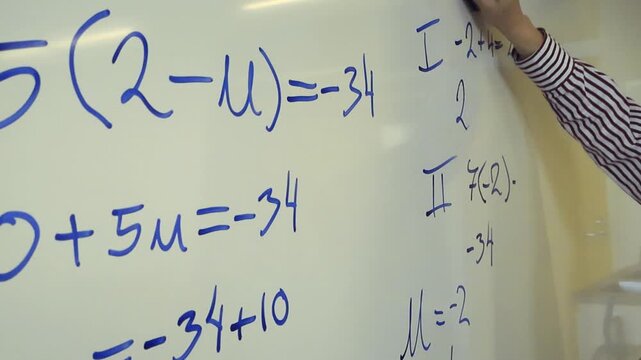 5(2-u)=-34
0+5u=-34
=-34+10
I -2+4=
2
II 7(-2)·
-34
u=-2